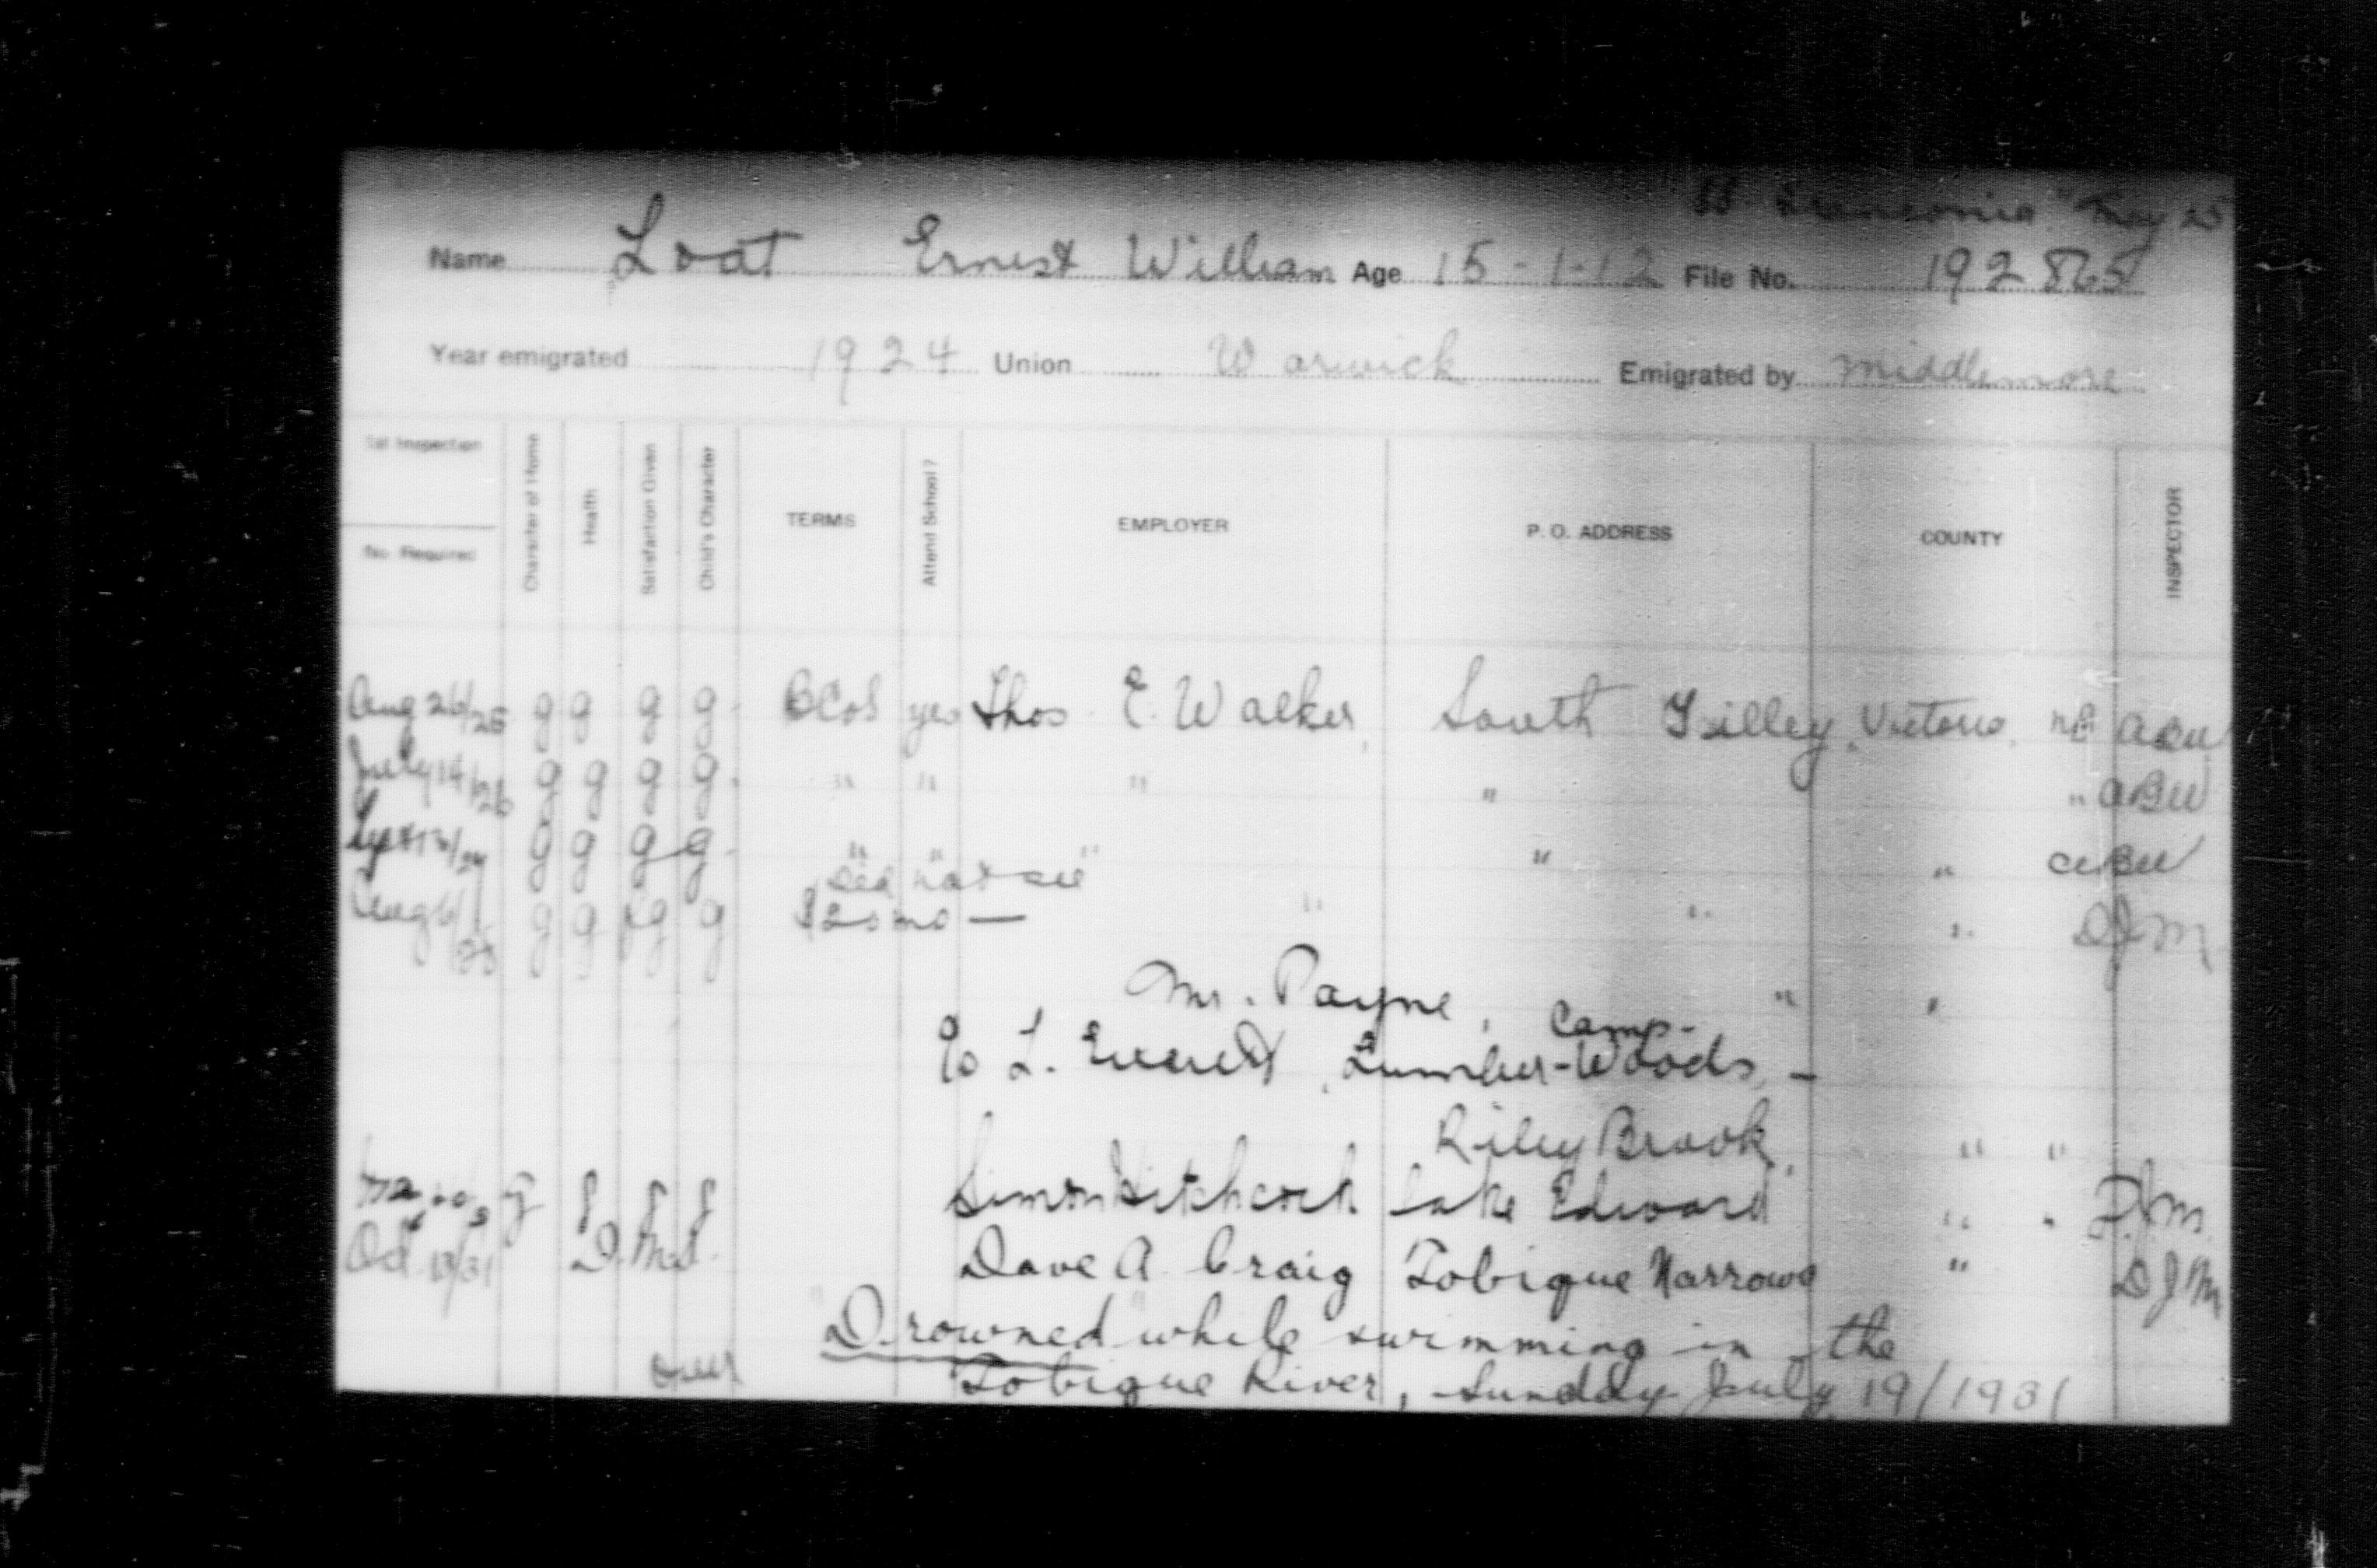 SS. Franconia May 25
Name Loat Ernest William Age 15-1-12 File No. 192865
Year emigrated 1924 Union Warwick Emigrated by Middlemore
1st Inspection
No. Required
Character of Home
Health
Satisfaction Given
Child's Character
TERMS
Attend School?
EMPLOYER
P. O. ADDRESS
COUNTY
INSPECTOR
Aug 26/25 g g g g yes Thos E. Walker, South Tilley, Victoria, NB
July 14/26 g g g g " " " " "
g g g g " " " " "
Did not see
Aug 6/28 g g g g $20 mo — " " " DJM
Mr. Payne, " "
Camp-
L. Everett, Lumber-Woods, —
Riley Brook, " "
g g g g Simon Hitchcock Lake Edward " " DJM
Oct 13/31 Dave A. Craig Tobique Narrows " DJM
"Drowned" while swimming in the
over Tobique River, Sunday July 19/1931